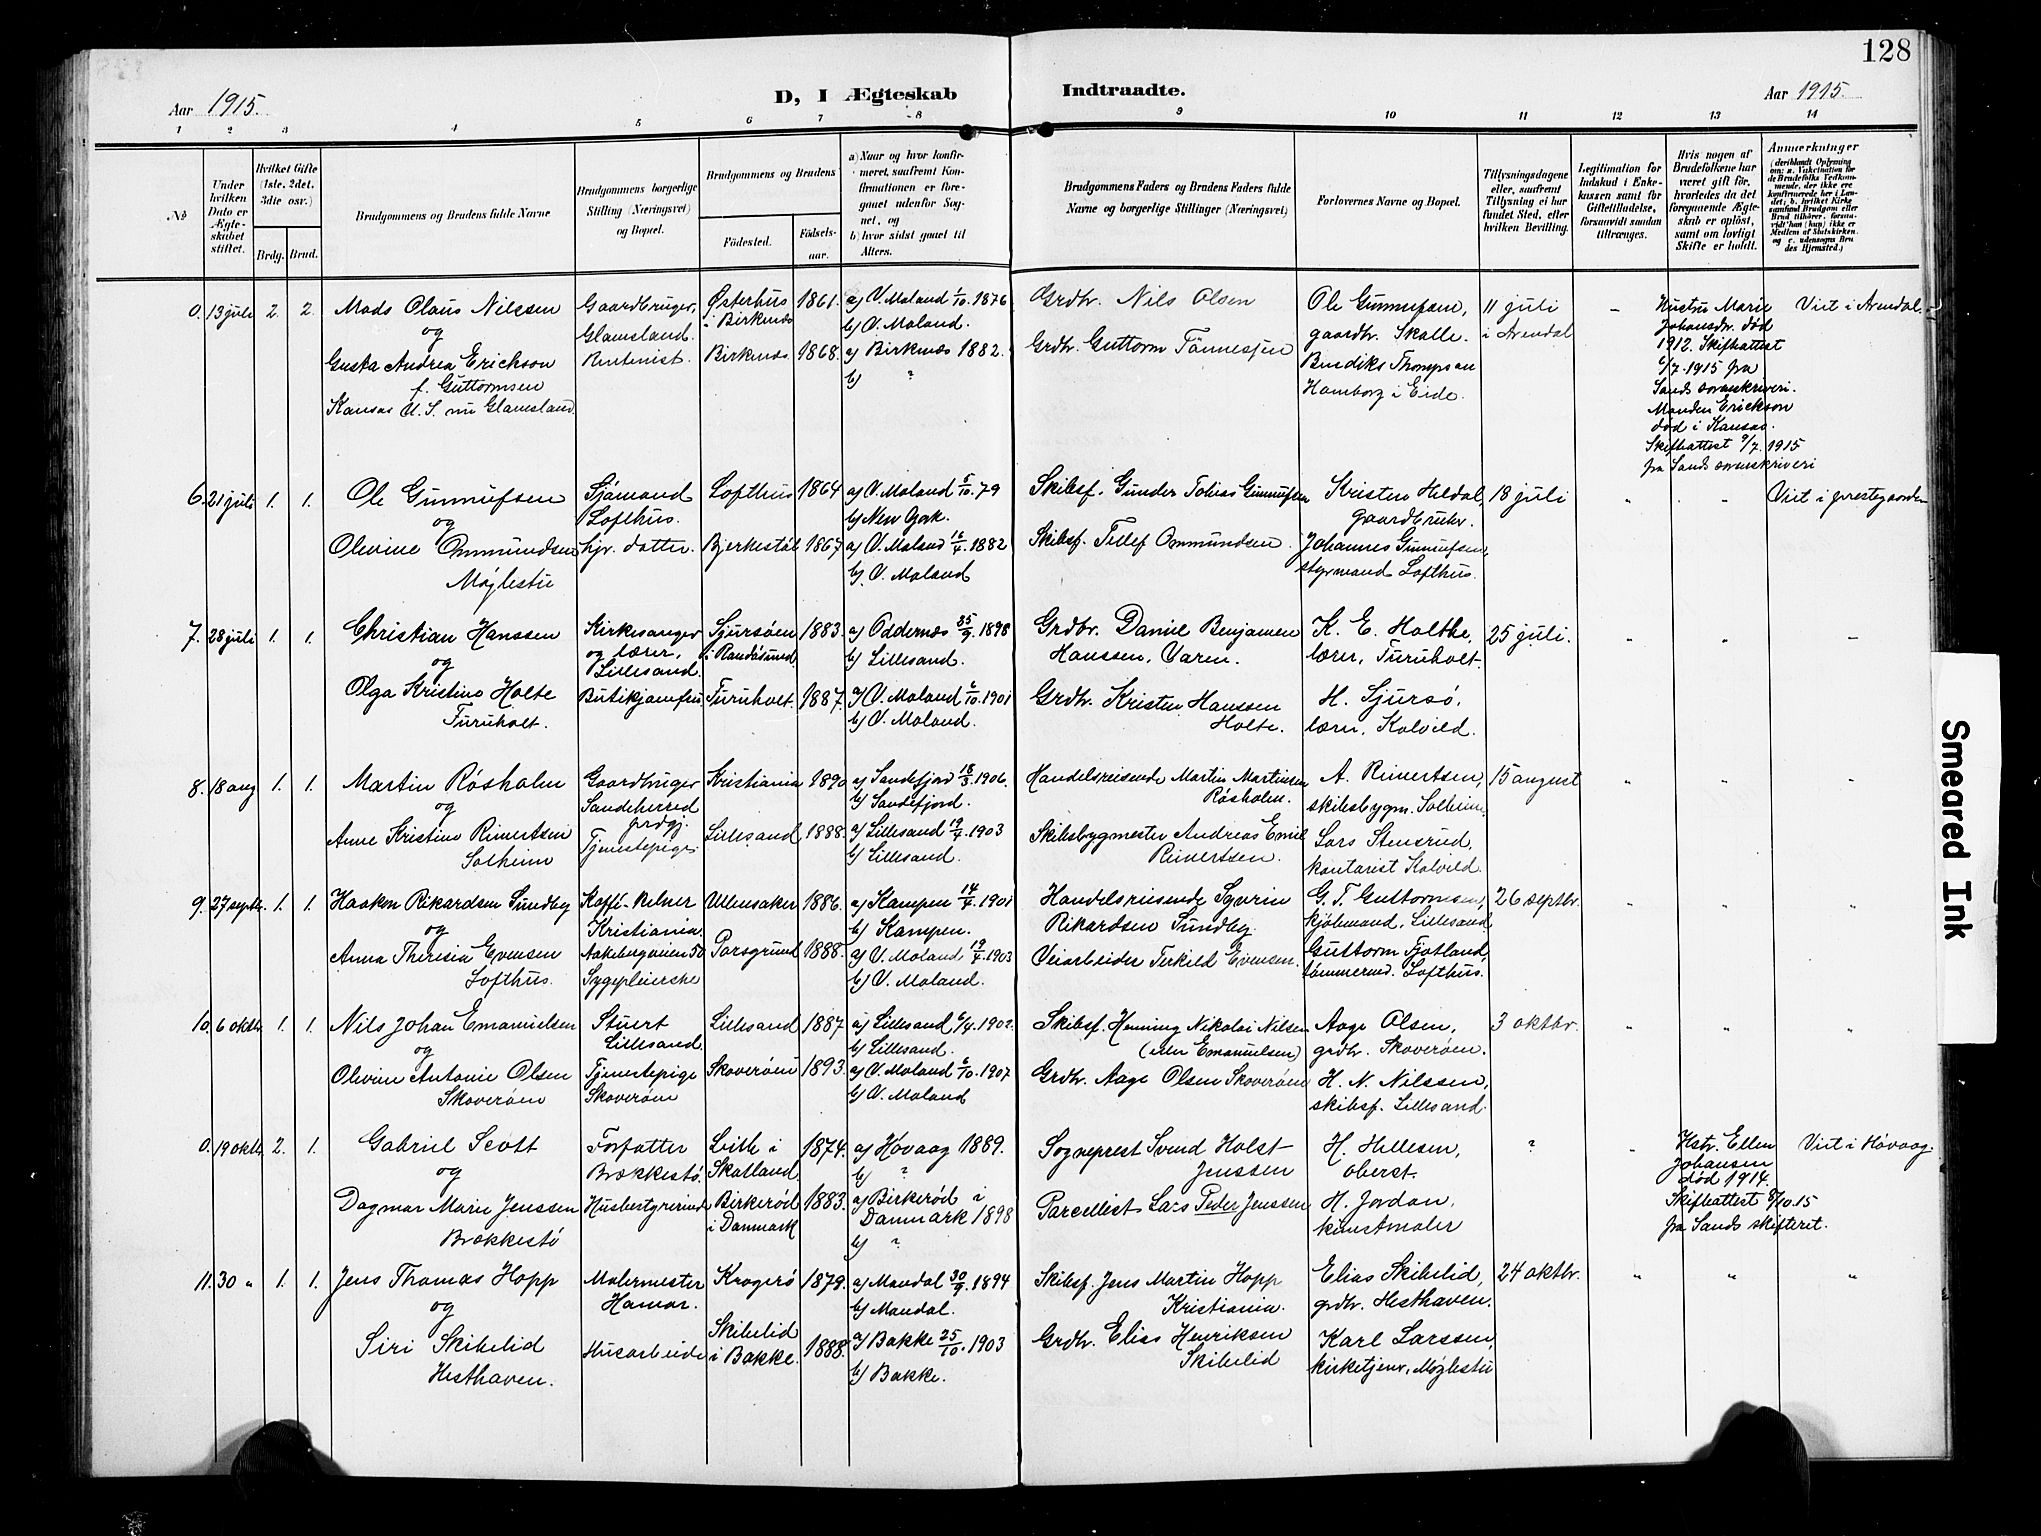 128
Aar 1915.
D, I Ægteskab
Indtraadte.
Aar 1915.
1 2 3 4 5 6 7 8 9 10 11 12 13 14
No
Under hvilken Dato er Ægteskabet stiftet.
Hvilket Gifte (1ste, 2det, 3die osv.)
Brdg. Brud.
Brudgommens og Brudens fulde Navne
Brudgommens borgerlige Stilling (Næringsvei) og Bopæl.
Brudgommens og Brudens
Födested.
Födsels-aar.
a) Naar og hvor konfirmeret, saafremt Konfirmationen er foregaaet udenfor Sognet, og
b) hvor sidst gaaet til Alters.
Brudgommens Faders og Brudens Faders fulde Navne og borgerlige Stillinger (Næringsvei)
Forlovernes Navne og Bopæl.
Tillysningsdagene eller, saafremt Tillysning ei har fundet Sted, efter hvilken Bevilling.
Legitimation for Indskud i Enkekassen samt for Giftetilladelse, forsaavidt saadan tiltrænges.
Hvis nogen af Brudefolkene har været gift før, hvorledes da det foregaaende Ægteskab er opløst, samt om lovligt Skifte er holdt.
Anmærkninger
(deriblandt Oplysning om: a. Vakcination for de Brudefolks Vedkommende, der ikke ere konfirmerede her i Landet; b. hvilket Kirkesamfund Brudgom eller Brud tilhører, forsaavidt han (hun) ikke er Medlem af Statskirken. og c. udensogns Brudes Hjemsted.)
0. 13 juli 2. 2. Mads Olaus Nilssen
og
Gusta Andrea Erickson
f. Guttormsen
Kansas U. S. nu Glamsland.
Gaardbruger, Glamsland.
Rentenist.
Østerhus i Birknæs 1861.
Birknæs 1868.
a) V. Moland 1/10. 1876
b) V. Moland.
a) Birknæs 1882.
b) ?
Grdbr. Nils Olsen
Grdbr. Guttorm Tönnessen
Ole Gunnufsen,
gaardbr. Skalle.
Bendiks Thompson
Hamborg i Eide.
11 juli
i Arendal
Hustru Marie
Johansdr. død
1912. Skifteattest
6/7. 1915 fra
Sands sorenskriveri.
Manden Erickson
død i Kansas.
Skifteattest 9/7. 1915
fra Sands sorenskriveri
Viet i Arendal.
6. 21 juli 1. 1. Ole Gunnufsen
og
Olivine Ommundsen
Möglestu
Sjömand
Lofthus.
hjv. datter.
Lofthus 1864
Bjerkestöl 1867
a) V. Moland 5/10. 79
b) New York.
a) V. Moland 16/4. 1882
b) V. Moland
Skibsf. Gunder Tobias Gunnufsen
Skibsf. Tellef Ommundsen
Kristen Heldal,
gaardbruker.
Johannes Gunnufsen,
styrmand Lofthus.
18 juli
Viet i prestegaarden
7. 28 juli 1. 1. Christian Hanssen
og
Olga Kristine Holte
Turuholt.
Kirkesanger
og lærer,
Lillesand.
Butikjomfru
Sjursøen
i Randösund 1883.
Turuholt. 1887.
a) Oddernæs 25/9. 1898
b) Lillesand.
a) V. Moland 6/10. 1901
b) V. Moland.
Grdbr. Daniel Benjamen
Hanssen, Varen.
Grdbr. Kristen Hanssen
Holte.
K. E. Holthe,
lærer, Turuholt.
H. Sjursö,
lærer, Kalvild.
25 juli.
8. 18 aug 1. 1. Martin Rösholm
og
Anne Kristine Reinertsen
Solheim
Gaardbruger
Sandeherred
prdgj.
Tjenestepige
Kristiania 1890
Lillesand 1888.
a) Sandefjord 18/3. 1906.
b) Sandefjord.
a) Lillesand 19/4. 1903
b) Lillesand.
Handelsreisende Martin Martinsen
Rösholm.
Skibsbygmester Andreas Emil
Reinertsen.
A. Reinertsen,
skibsbygm. Solheim
Lars Stensrud,
kontorist Kalvild.
15 august
9. 27 septbr. 1. 1. Haaken Rikardsen Sundby
og
Anna Theresia Evensen
Lofthus.
Kaffe-Kelner
Kristiania.
Aakebergveien 50
Sygepleierske
Ullensaker 1886.
Porsgrund 1888.
a) Kampen 14/4. 1901
b) Kampen.
a) V. Moland 19/4. 1903
b) V. Moland.
Handelsreisende Syverin
Rikardsen Sundby.
Veiarbeider Terkild Evensen.
G. T. Guttormsen,
kjöbmand, Lillesand
Guttorm Fjotland,
tömmermd. Lofthus.
26 septbr.
10. 6 oktbr. 1. 1. Nils Johan Emanuelsen
og
Olivine Antonie Olsen
Skoveröen
Stuert
Lillesand.
Tjenestepige
Skoveröen
Lillesand 1887
Skoveröen 1893.
a) Lillesand 6/4. 1902
b) Lillesand.
a) V. Moland 6/10. 1907
b) V. Moland
Skibsf. Henning Nikolai Nilsen
(eller Emanuelsen)
Grdbr. Aage Olsen Skoveröen
Aage Olsen,
grdbr. Skoveröen.
H. N. Nilssen,
skibsf. Lillesand.
3 oktbr.
0. 19 oktbr. 2. 1. Gabriel Scott
og
Dagmar Marie Jenssen
Brækkestö
Forfatter
Brækkestö.
Husbestyrerinde
Leith i
Skotland. 1874.
Birkeröd
i Danmark 1883.
a) Hövaag 1889.
b) ?
a) Birkeröd i
Danmark 1898
b) ?
Sogneprest Svend Holst
Jenssen
Parcellist Lars Peder Jenssen
H. Hellesen,
oberst.
H. Jordan,
kunstmaler
?
Hstr. Ellen
Johansen
død 1914.
Skifteattest 8/10. 15
fra Sands skifteret.
Viet i Hövaag.
11. 30 " 1. 1. Jens Thomas Hopp
og
Siri Skibelid
Hesthaven.
Malermester
Hamar.
Husarbeide
Kragerö 1879.
Skibelid
i Bakke. 1888.
a) Mandal 30/9. 1894
b) Mandal.
a) Bakke 25/10. 1903
b) Bakke.
Skibsf. Jens Martin Hopp
Kristiania.
Grdbr. Elias Henriksen
Skibelid
Elias Skibelid,
grdbr. Hesthaven.
Karl Larssen,
kirketjener, Möglestu
24 oktbr.
Smeared Ink